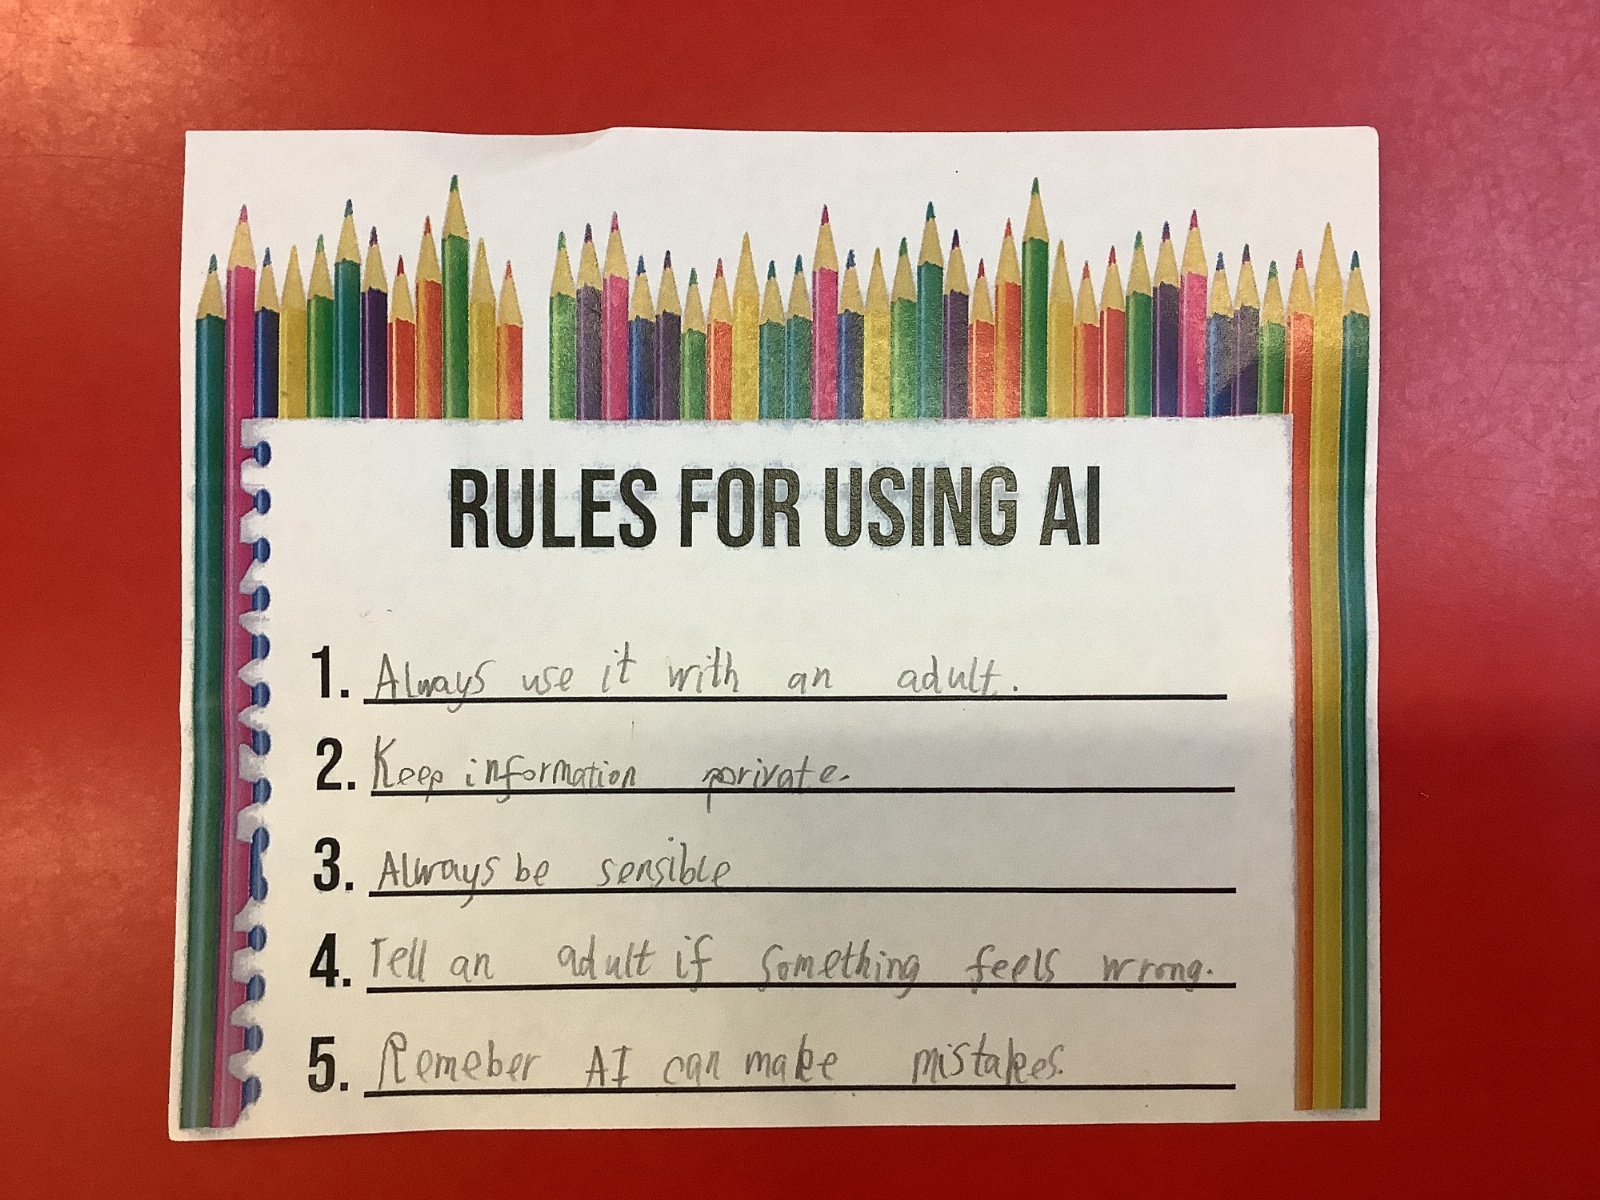 RULES FOR USING AI
1. Always use it with an adult.
2. Keep information private.
3. Always be sensible
4. Tell an adult if something feels wrong.
5. Remeber AI can make mistakes.